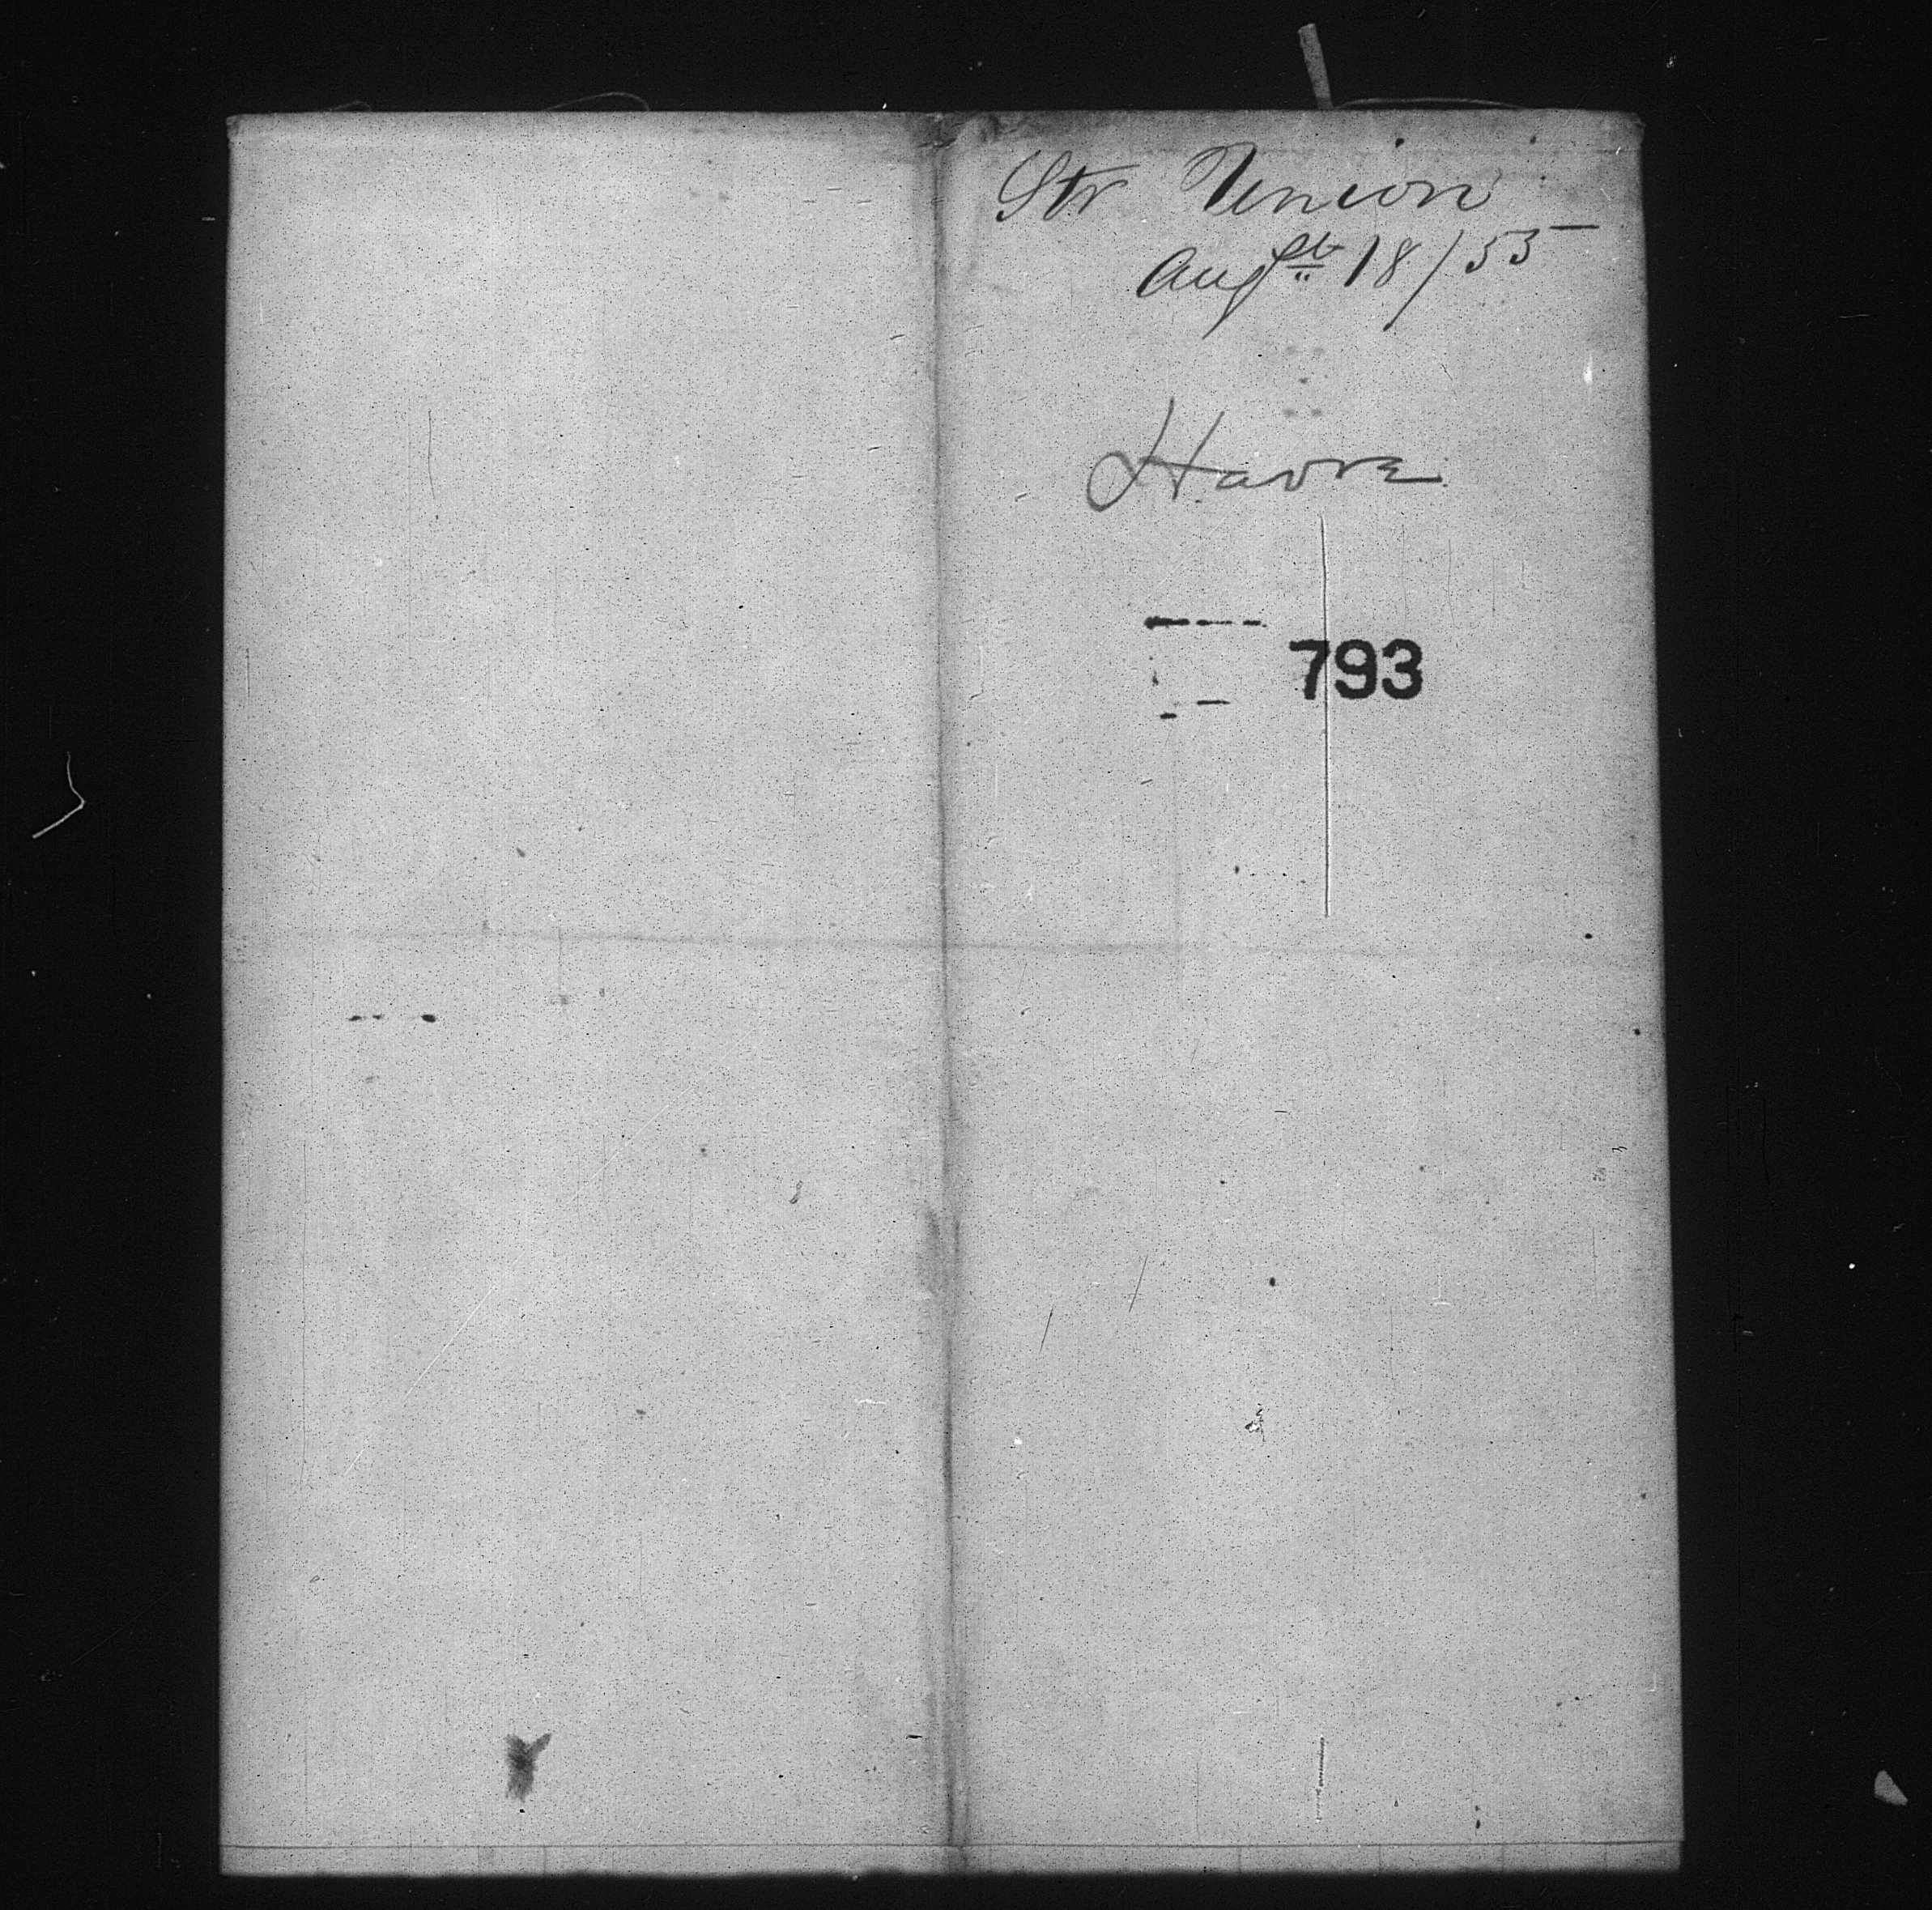 Str Union
Augst 18/55
Havre
793